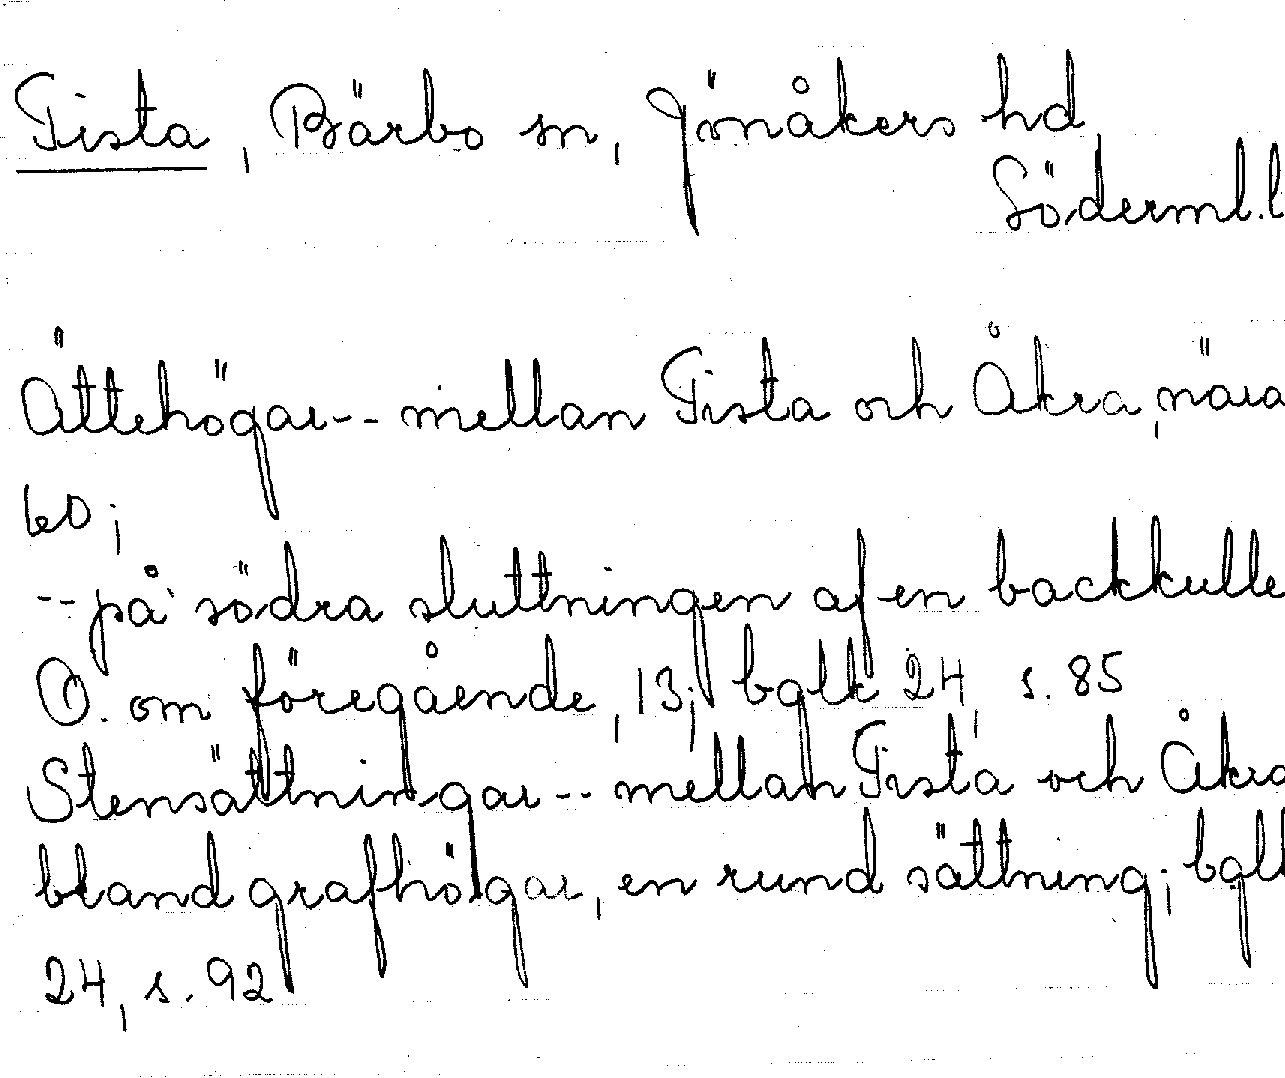 Tista, Bärbo sn, Jönåkers hd
Söderml.l
Ättehögar-- mellan Tista och Åkra, nära
bo;
--på södra sluttningen af en backkulle
O. om föregående, 13; bglk 24, s. 85
Stensättningar-- mellan Tista och Åkra
bland grafhögar, en rund sättning; bglk
24, s. 92